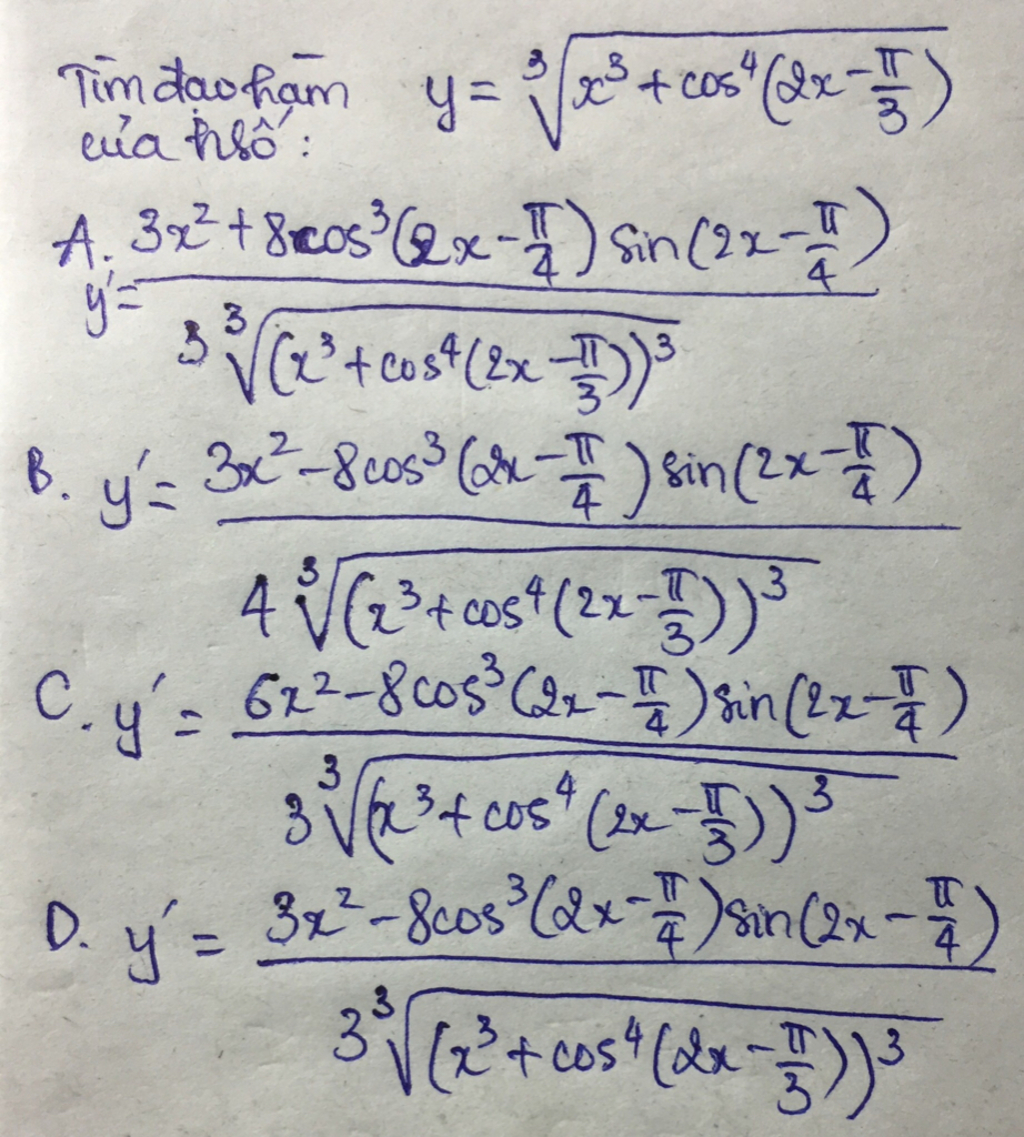 Tìm đạo hàm y = ∛(x³ + cos⁴(2x - π/3))
của hsố :
A. 3x² + 8cos³(2x - π/4) sin(2x - π/4)
y' =
3 ∛((x³ + cos⁴(2x - π/3))³)
B. y' = 3x² - 8cos³(2x - π/4) sin(2x - π/4)
4 ∛((x³ + cos⁴(2x - π/3))³)
C. y' = 6x² - 8cos³(2x - π/4) sin(2x - π/4)
3 ∛((x³ + cos⁴(2x - π/3))³)
D. y' = 3x² - 8cos³(2x - π/4) sin(2x - π/4)
3 ∛((x³ + cos⁴(2x - π/3))³)